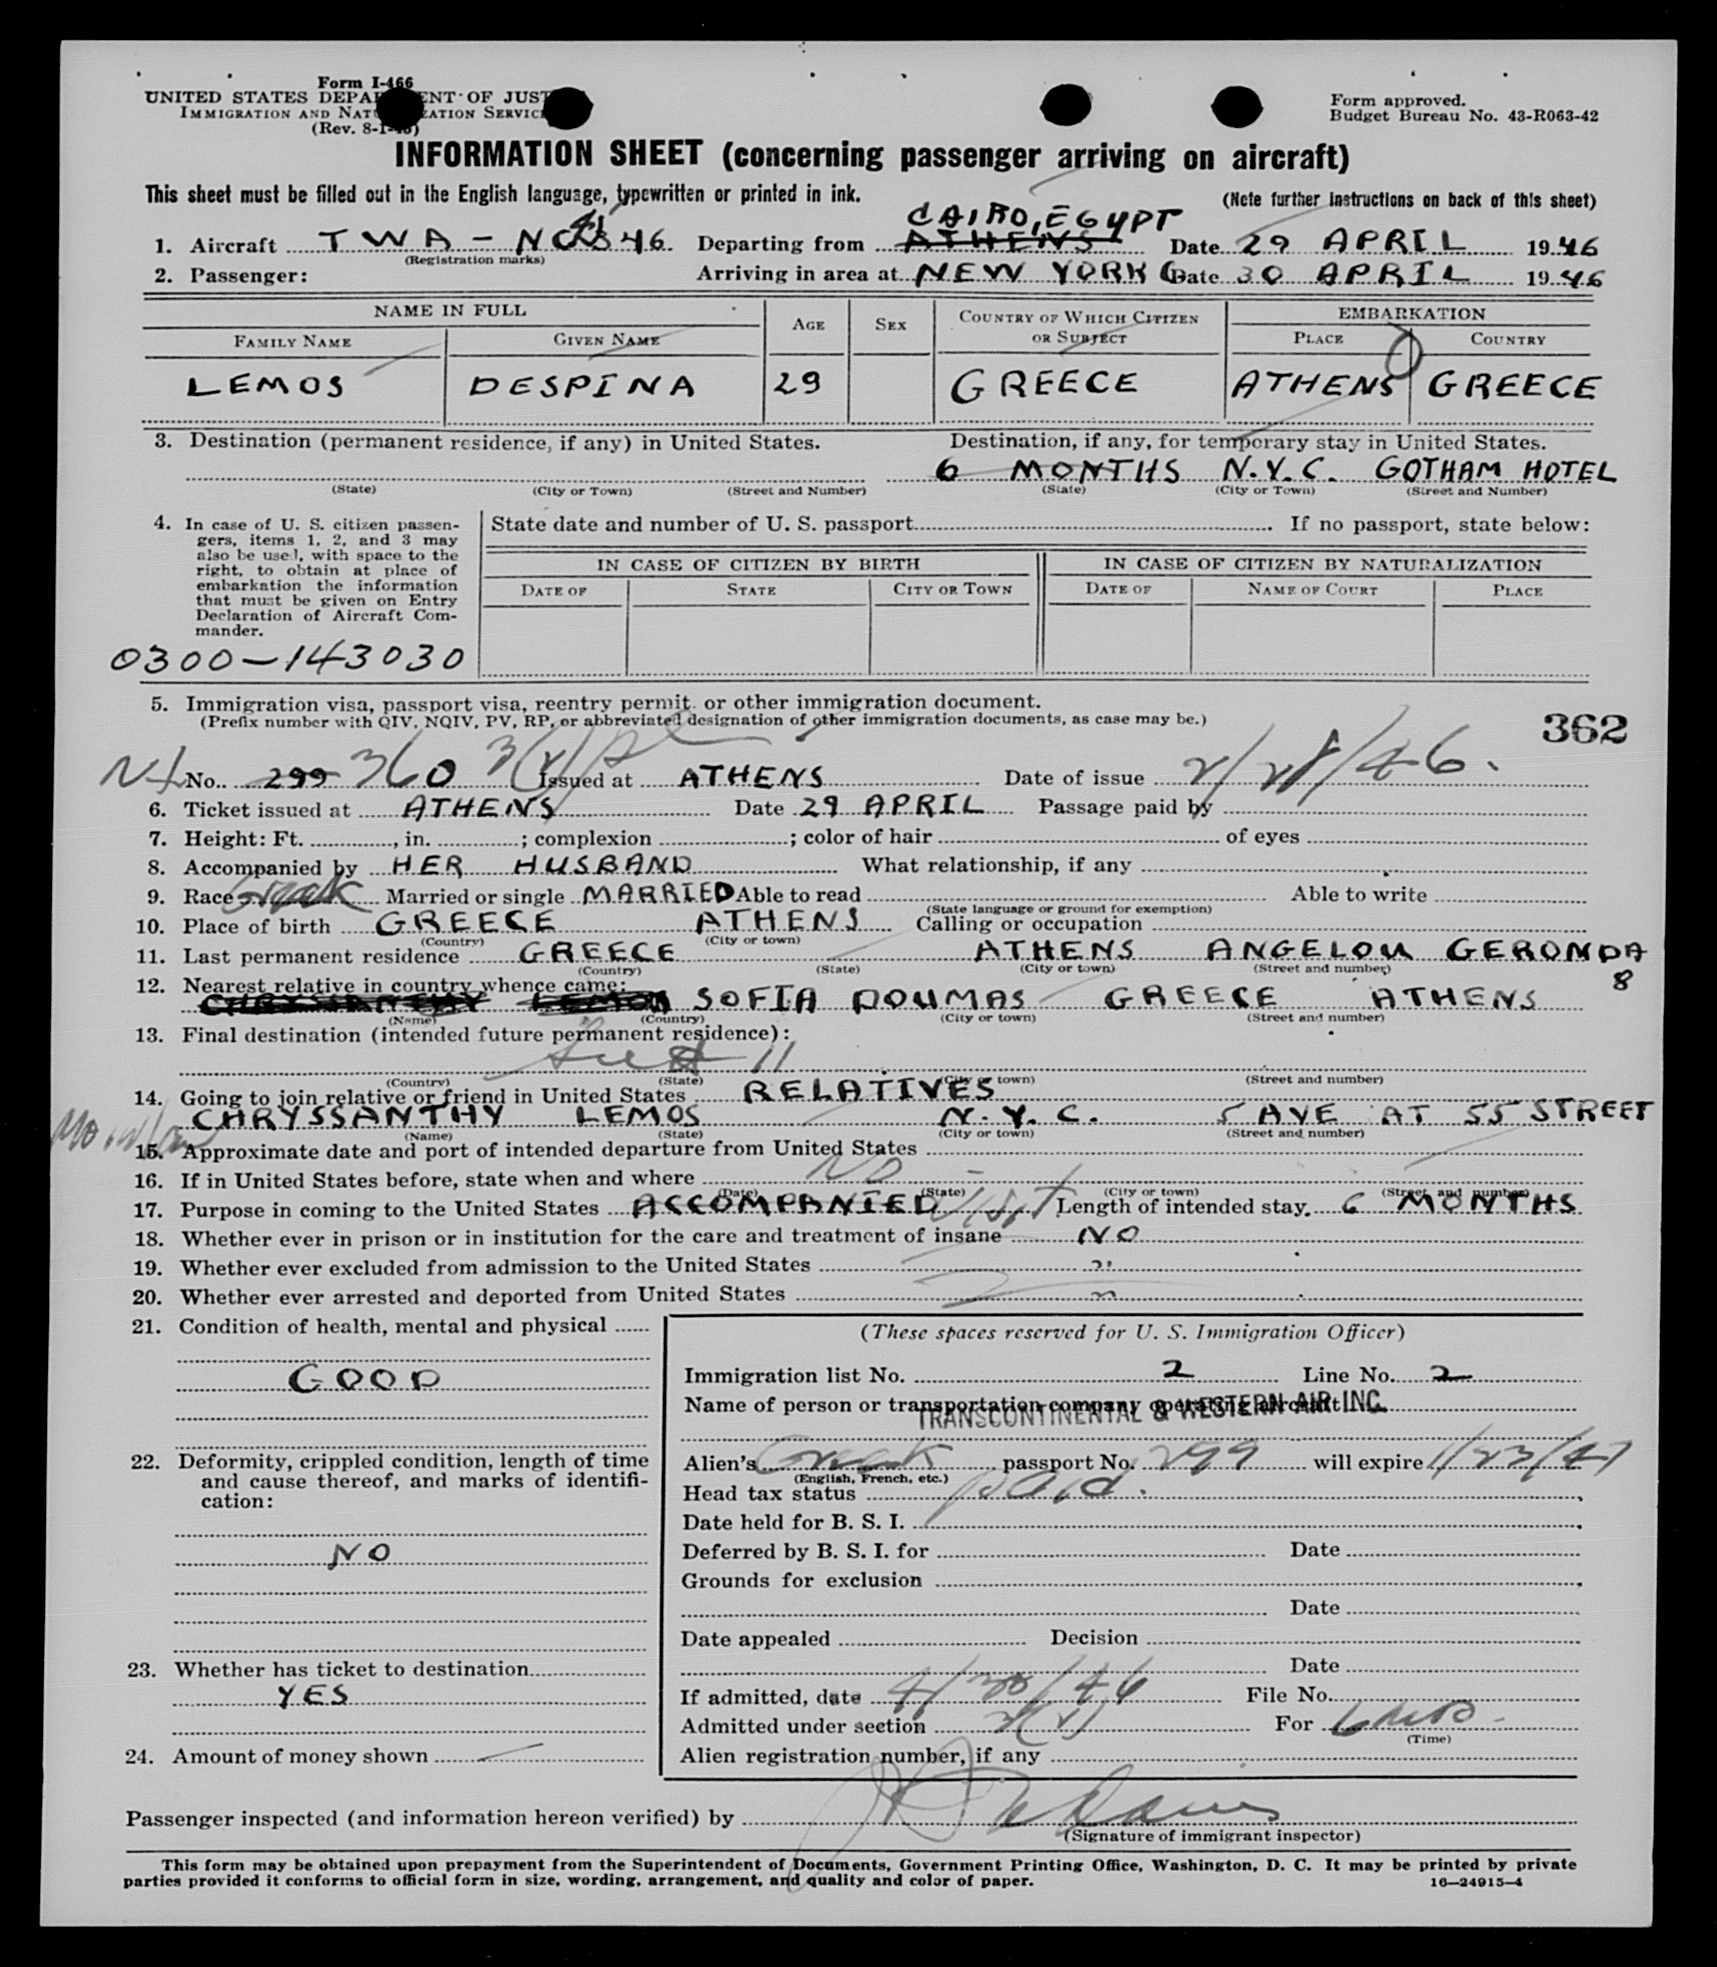 Form I-466
UNITED STATES DEPARTMENT OF JUSTICE
IMMIGRATION AND NATURALIZATION SERVICE
(Rev. 8-1-45)
Form approved.
Budget Bureau No. 43-R063-42
INFORMATION SHEET (concerning passenger arriving on aircraft)
This sheet must be filled out in the English language, typewritten or printed in ink. (Note further instructions on back of this sheet)
CAIRO, EGYPT
1. Aircraft TWA - Departing from ATHENS Date 29 APRIL 1946
(Registration marks)
2. Passenger: Arriving in area at NEW YORK C Date 30 APRIL 1946
NAME IN FULL AGE SEX COUNTRY OF WHICH CITIZEN OR SUBJECT EMBARKATION
FAMILY NAME GIVEN NAME PLACE COUNTRY
LEMOS DESPINA 29 GREECE ATHENS GREECE
3. Destination (permanent residence, if any) in United States. Destination, if any, for temporary stay in United States.
6 MONTHS N.Y.C. GOTHAM HOTEL
(State) (City or Town) (Street and Number) (State) (City or Town) (Street and Number)
4. In case of U. S. citizen passen-
gers, items 1, 2, and 3 may
also be used, with space to the
right, to obtain at place of
embarkation the information
that must be given on Entry
Declaration of Aircraft Com-
mander.
State date and number of U. S. passport. If no passport, state below:
IN CASE OF CITIZEN BY BIRTH IN CASE OF CITIZEN BY NATURALIZATION
DATE OF STATE CITY OR TOWN DATE OF NAME OF COURT PLACE
0300-143030
5. Immigration visa, passport visa, reentry permit, or other immigration document.
(Prefix number with QIV, NQIV, PV, RP, or abbreviated designation of other immigration documents, as case may be.)
362
No. 299 360 3(2) Issued at ATHENS Date of issue 2/28/46.
6. Ticket issued at ATHENS Date 29 APRIL Passage paid by
7. Height: Ft. , in. ; complexion ; color of hair of eyes
8. Accompanied by HER HUSBAND What relationship, if any
9. Race Greek Married or single MARRIED Able to read Able to write
(State language or ground for exemption)
10. Place of birth GREECE ATHENS Calling or occupation
(Country) (City or town)
11. Last permanent residence GREECE ATHENS ANGELOU GERONDA
8
(Country) (State) (City or town) (Street and number)
12. Nearest relative in country whence came:
CHRYSSANTHY LEMOS SOFIA DOUMAS GREECE ATHENS
(Name) (Country) (City or town) (Street and number)
13. Final destination (intended future permanent residence):
(Country) (State) (City or town) (Street and number)
14. Going to join relative or friend in United States RELATIVES
CHRYSSANTHY LEMOS N.Y.C. 5 AVE AT 55 STREET
(Name) (State) (City or town) (Street and number)
15. Approximate date and port of intended departure from United States
16. If in United States before, state when and where NO
(Date) (State) (City or town) (Street and number)
17. Purpose in coming to the United States ACCOMPANIED Visit Length of intended stay. 6 MONTHS
18. Whether ever in prison or in institution for the care and treatment of insane NO
19. Whether ever excluded from admission to the United States "
20. Whether ever arrested and deported from United States "
21. Condition of health, mental and physical
GOOD
22. Deformity, crippled condition, length of time
and cause thereof, and marks of identifi-
cation:
NO
23. Whether has ticket to destination
YES
24. Amount of money shown —
(These spaces reserved for U. S. Immigration Officer)
Immigration list No. 2 Line No. 2
Name of person or transportation company operating aircraft
TRANSCONTINENTAL & WESTERN AIR INC.
Alien's Greek passport No. 299 will expire 1/23/47
(English, French, etc.)
Head tax status paid.
Date held for B. S. I.
Deferred by B. S. I. for Date
Grounds for exclusion
Date
Date appealed Decision
Date
If admitted, date 4/30/46 File No.
Admitted under section 3(2) For 6 mos.
(Time)
Alien registration number, if any
Passenger inspected (and information hereon verified) by
(Signature of immigrant inspector)
This form may be obtained upon prepayment from the Superintendent of Documents, Government Printing Office, Washington, D. C. It may be printed by private
parties provided it conforms to official form in size, wording, arrangement, and quality and color of paper. 16—24915-4